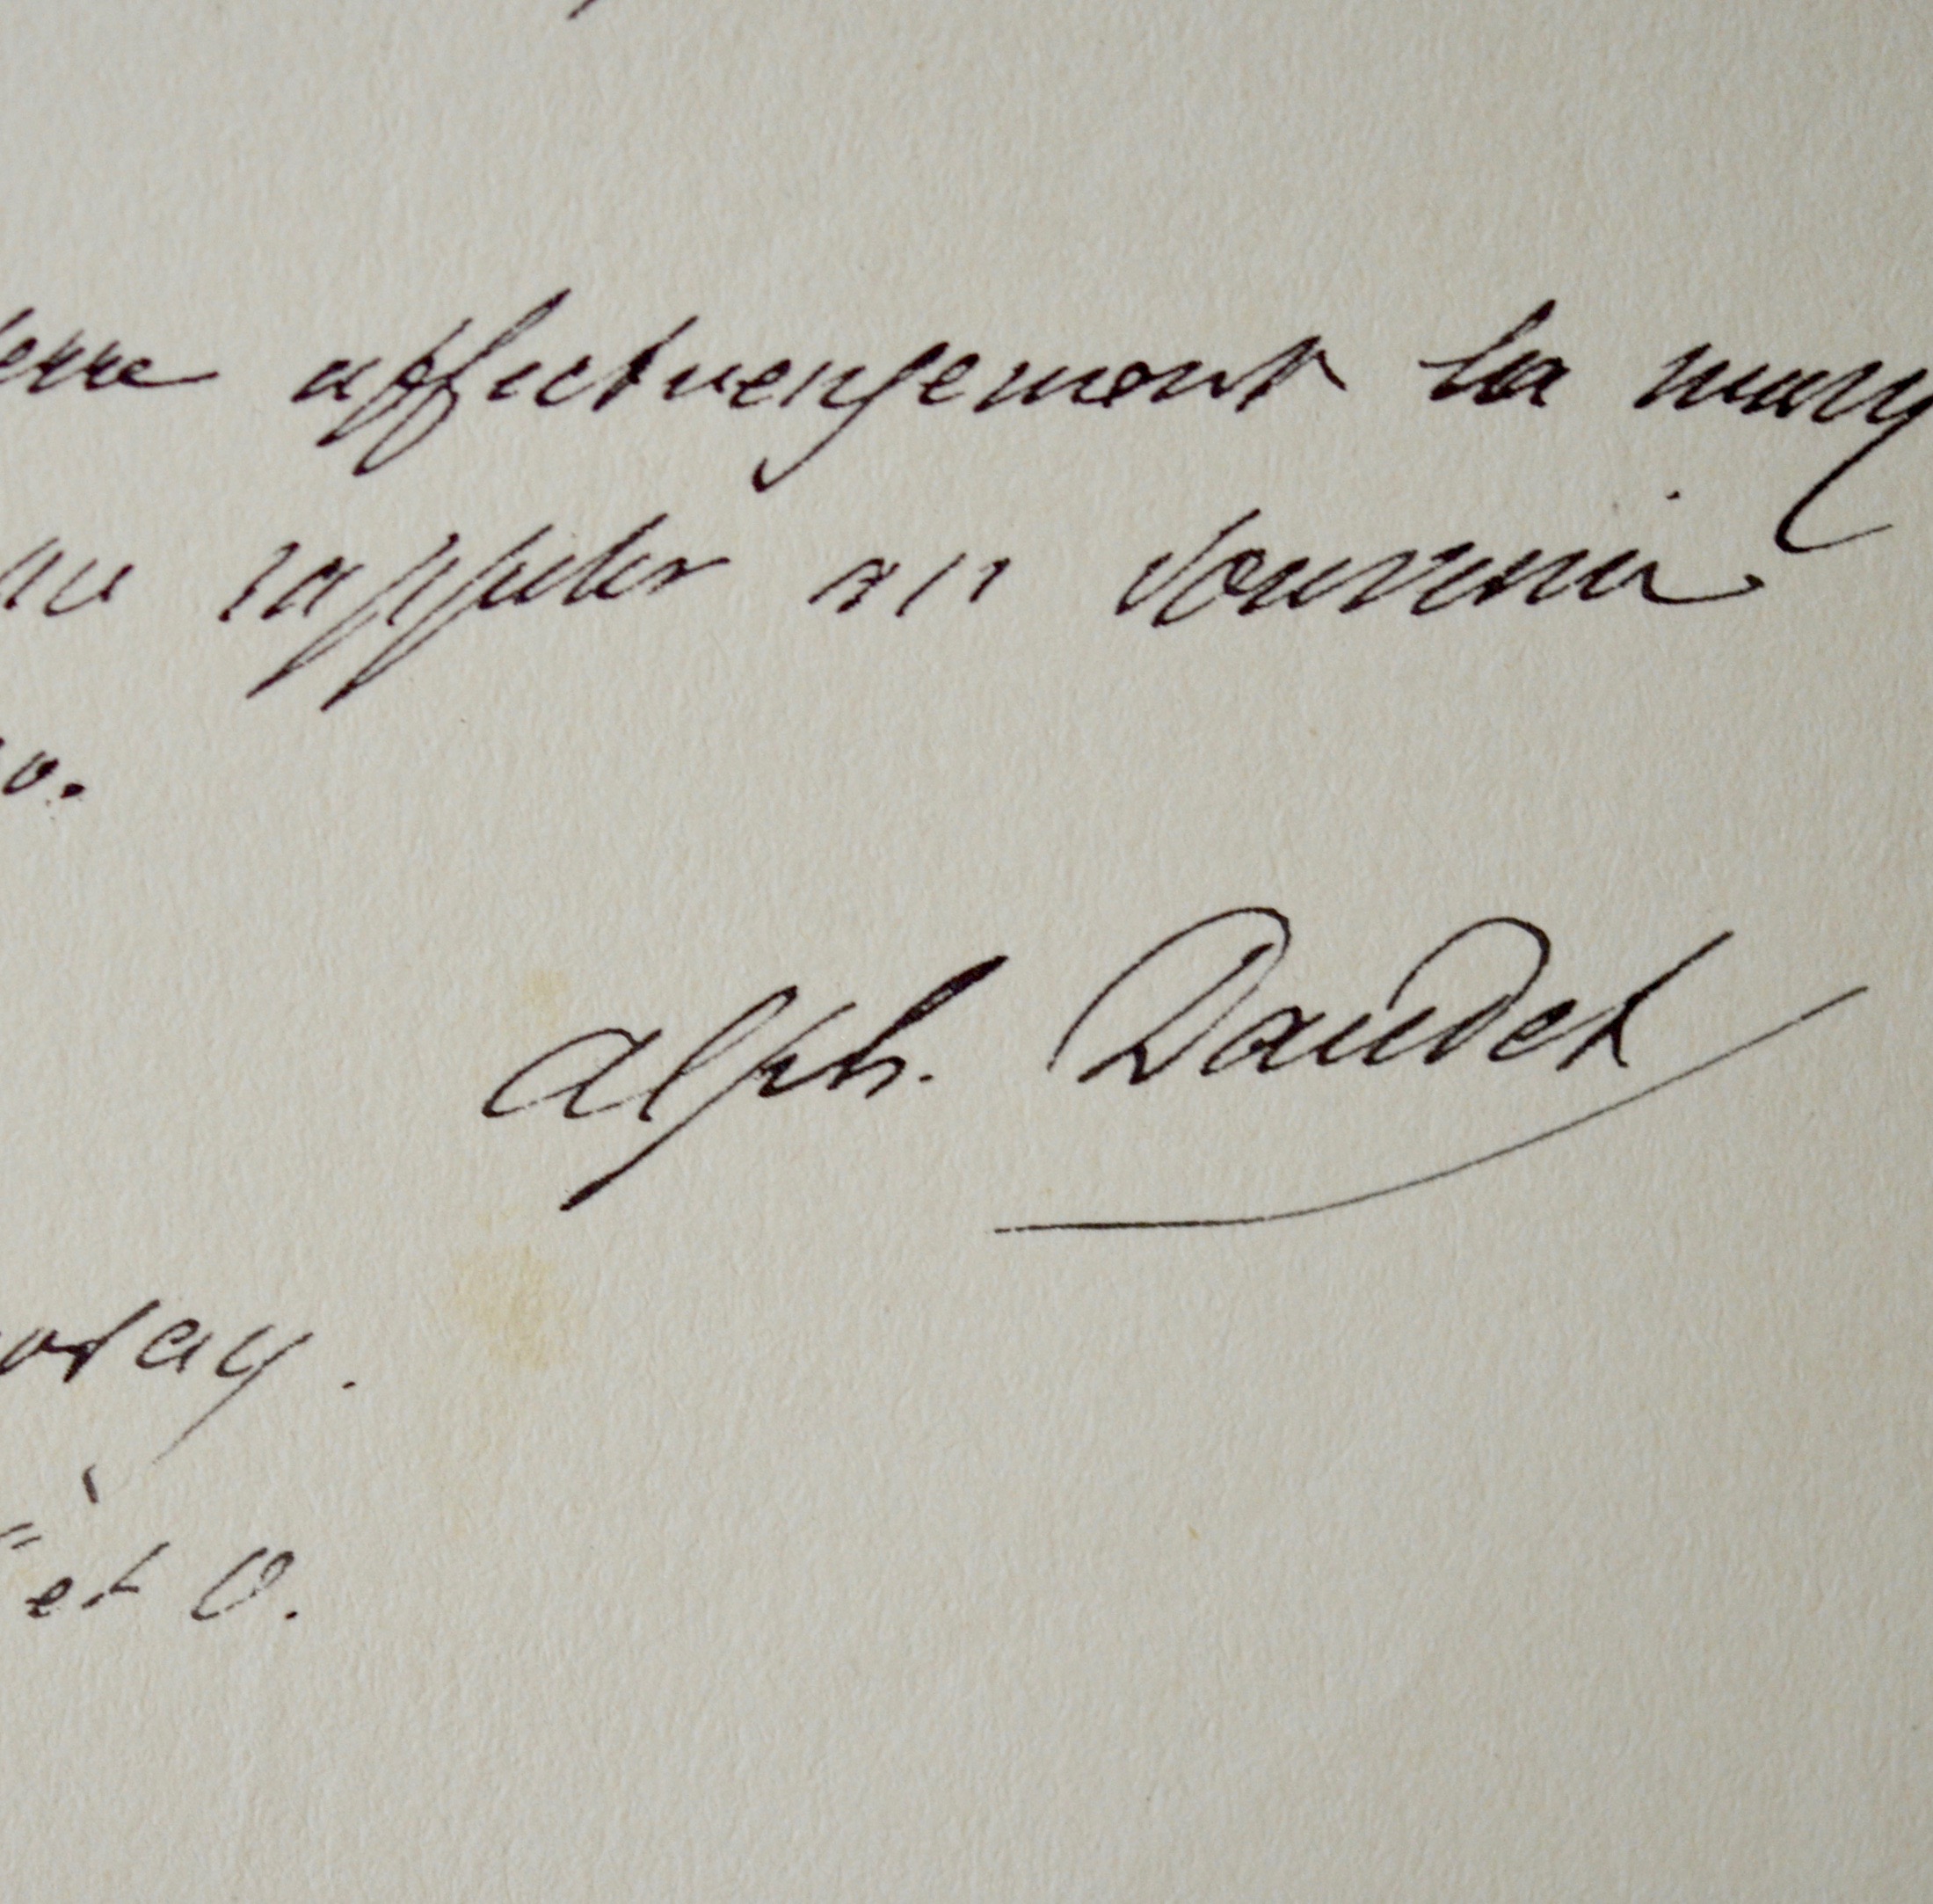 serre affectueusement la main
me rappeler au souvenir
o.
Alph. Daudet
et O.